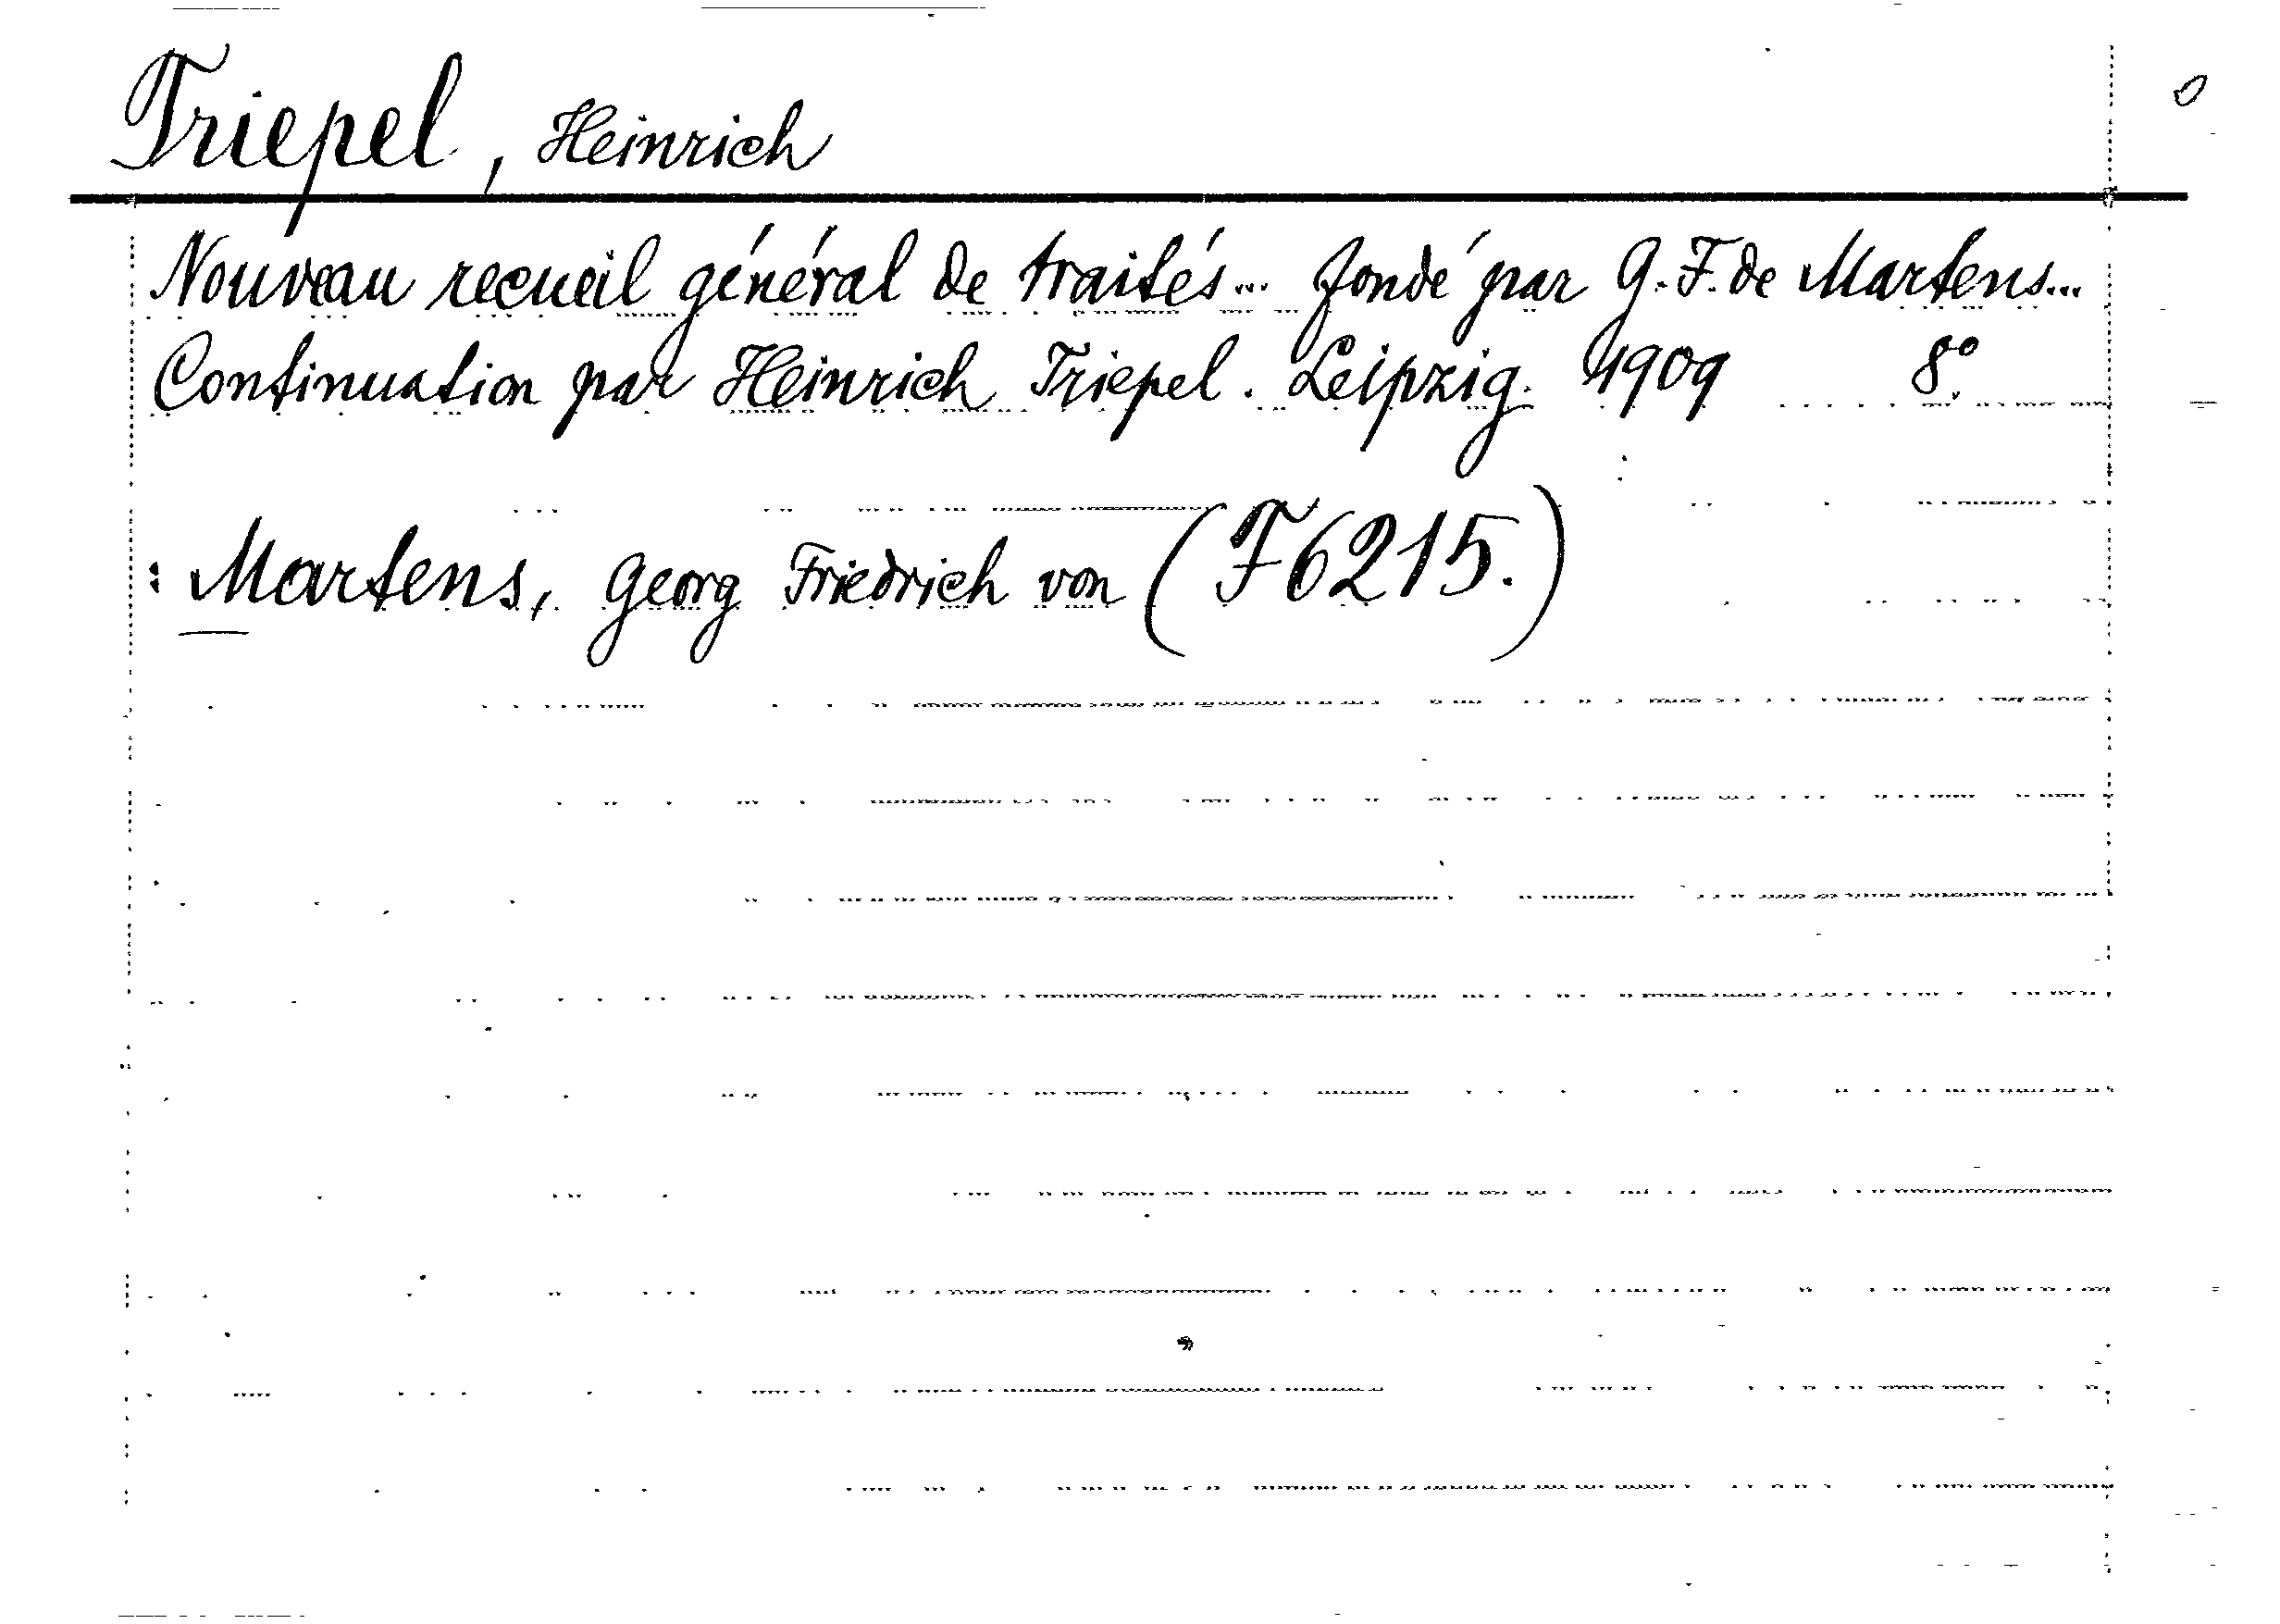 Triepel, Heinrich
Nouveau recueil général de traités... fondé par G. F. de Martens...
Continuation par Heinrich Triepel. Leipzig. 1909 8°.
: Martens, Georg Friedrich von (F6215.)